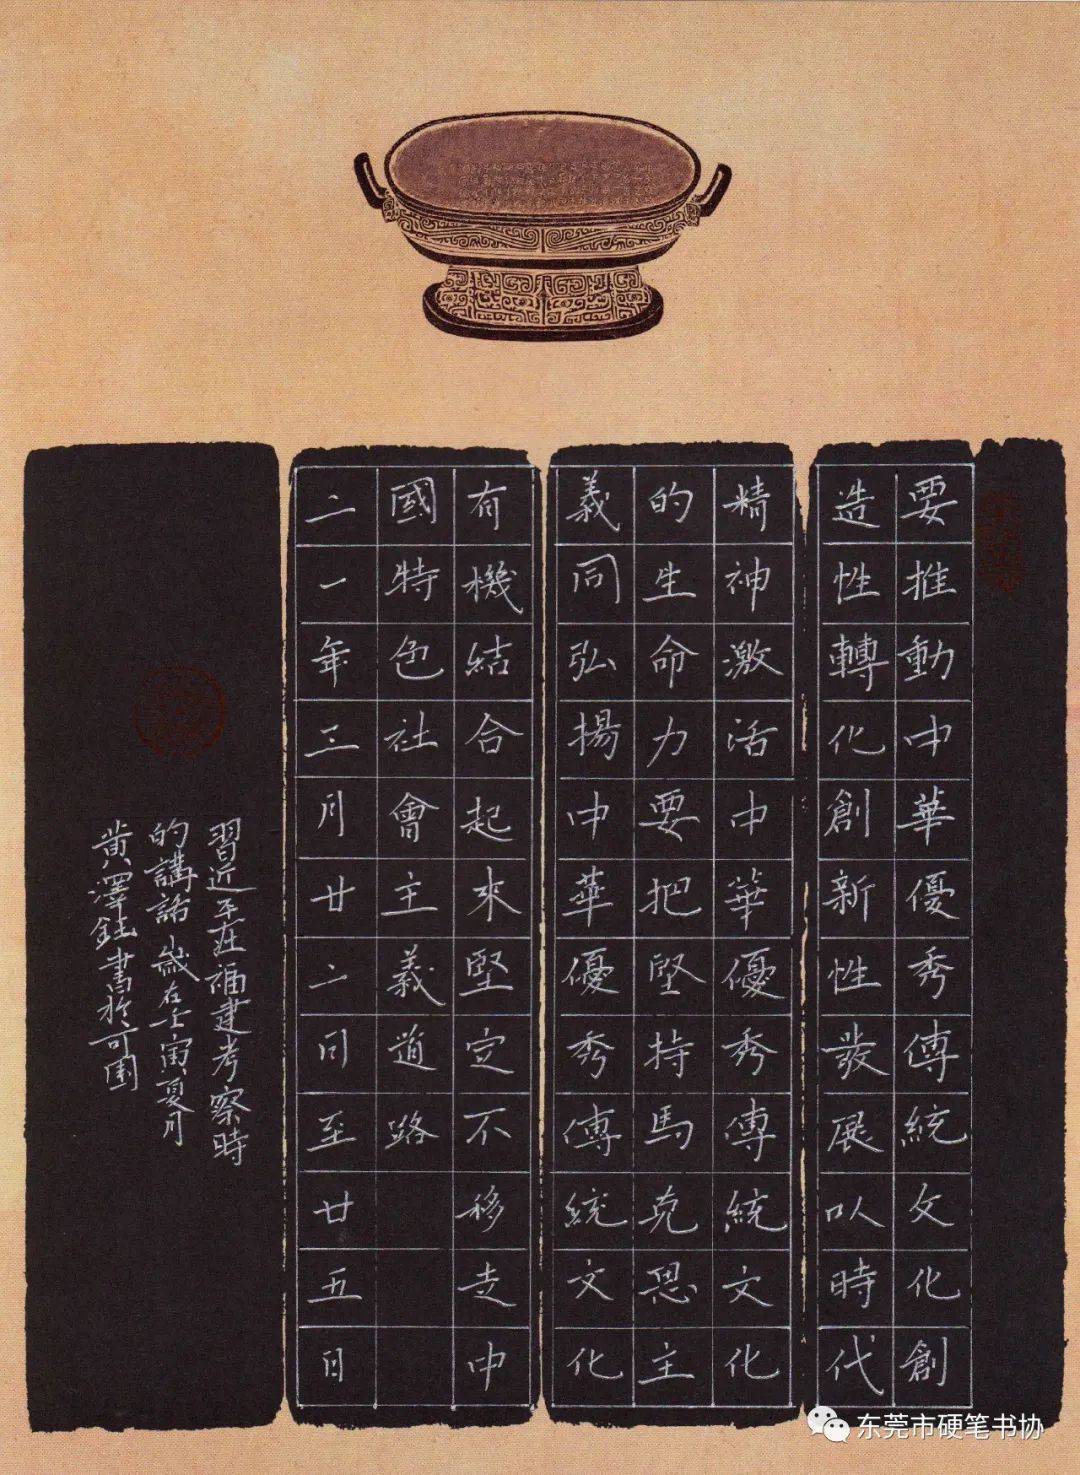 要推動中華優秀傳統文化創
造性轉化創新性發展以時代
精神激活中華優秀傳統文化
的生命力要把堅持馬克思主
義同弘揚中華優秀傳統文化
有機結合起來堅定不移走中
國特色社會主義道路
二一年三月廿二日至廿五日
習近平在福建考察時
的講話歲在壬寅夏月
黃澤鈺書於可園
东莞市硬笔书协